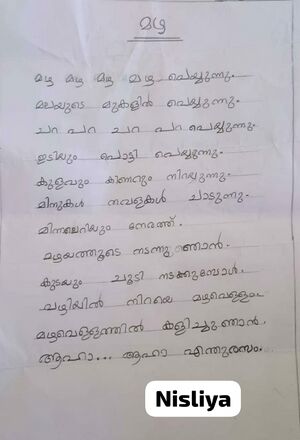 മഴ
മഴ മഴ മഴ മഴ പെയ്യുന്നു.
മലയുടെ മുകളിൽ പെയ്യുന്നു.
ചറ പറ ചറ പറ പെയ്യുന്നു.
ഇടിയും പൊട്ടി പെയ്യുന്നു.
കുളവും കിണറും നിറയുന്നു.
മീനുകൾ തവളകൾ ചാടുന്നു.
മിന്നലെറിയും നേരത്ത്.
മഴയത്തൂടെ നടന്നു ഞാൻ.
കുടയും ചൂടി നടക്കുമ്പോൾ.
വഴിയിൽ നിറയെ മഴവെള്ളം.
മഴവെള്ളത്തിൽ കളിച്ചു ഞാൻ.
ആഹാ... ആഹാ എന്തുരസം.
Nisliya